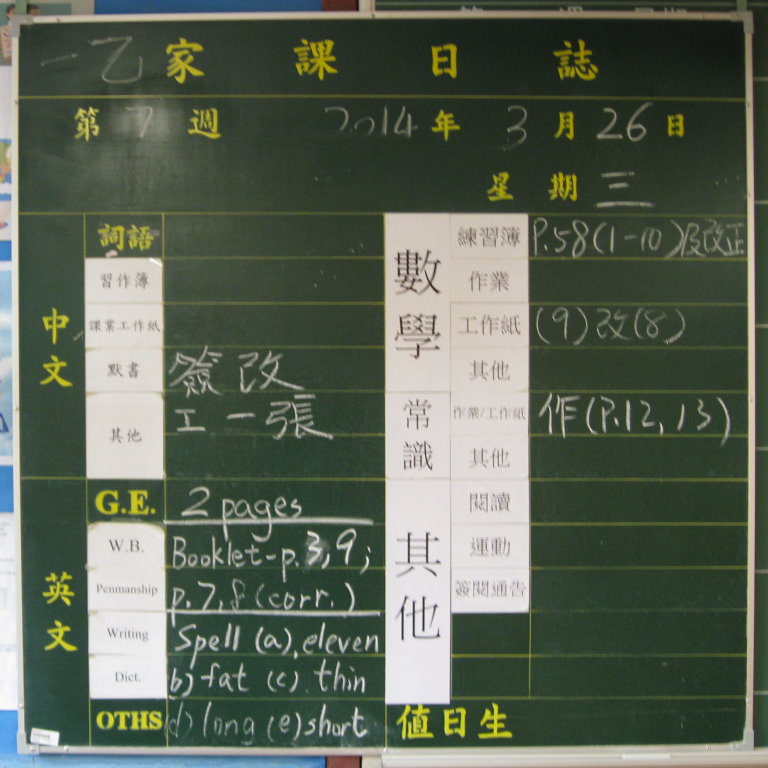 一乙家課日誌
第7週 2014年3月26日
星期三
中文
詞語
習作簿
課業工作紙
默書 簽改
其他 工一張
數學
練習簿 P.58(1-10)及改正
作業
工作紙 (9)改(8)
其他
常識
作業/工作紙 作(P.12, 13)
其他
英文
G.E. 2 pages
W.B. Booklet-p.3,9;
Penmanship p.7,8 (corr.)
Writing Spell (a) eleven
Dict. b) fat (c) thin
OTHS d) long (e) short
其他
閱讀
運動
簽閱通告
值日生